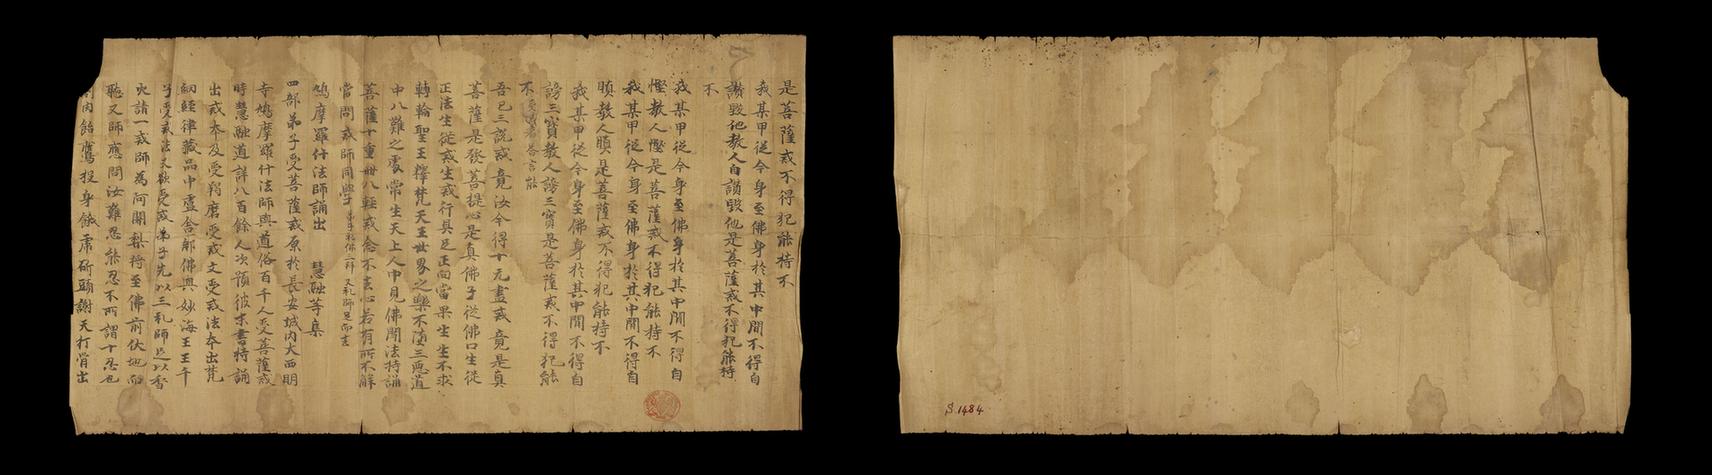 是菩薩戒不得犯能持不
我某甲從今身至佛身於其中間不得自
讚毀他教人自讚毀他是菩薩戒不得犯能持
不
我某甲從今身至佛身於其中間不得自
慳教人慳是菩薩戒不得犯能持不
我某甲從今身至佛身於其中間不得自
瞋教人瞋是菩薩戒不得犯能持不
我某甲從今身至佛身於其中間不得自
謗三寶教人謗三寶是菩薩戒不得犯能
不 受者答言能
吾已三說戒竟汝今得十无盡戒竟是真
菩薩是發菩提心是真佛子從佛口生從
正法生從戒生戒行具足正向當果生生不求
轉輪聖王釋梵天王世界之樂不墮三惡道
中八難之處常生天上人中見佛聞法持誦
菩薩十重卌八輕戒念不去心若有所不解
當問戒師同學
鳩摩羅什法師誦出 慧融等集
四部弟子受菩薩戒原於長安城內大西明
寺鳩摩羅什法師與道俗百千人受菩薩戒
時慧融道詳八百餘人次預彼末書持誦
出戒本及受羯磨受戒文受戒法本出梵
網經律藏品中盧舍那佛與妙海王王千
子受戒法又欲受戒弟子先以三礼師足以香
火請一戒師為阿闍梨將至佛前伏地而
聽又師應問汝難忍能忍不所謂十忍也
割肉飴鷹投身餓虎斫頭謝天打骨出
S.1484